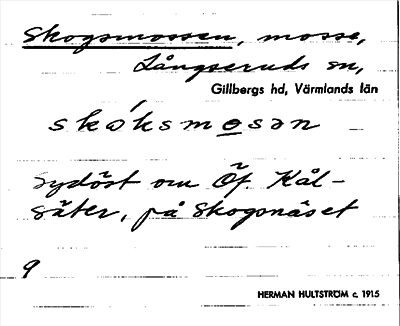 Skogsmossen, mosse,
Långseruds sn,
Gillbergs hd, Värmlands län
skɷ́ksmosən
sydöst om Öf. Kål-
säter, på Skogsnäset
9
HERMAN HULTSTRÖM c. 1915